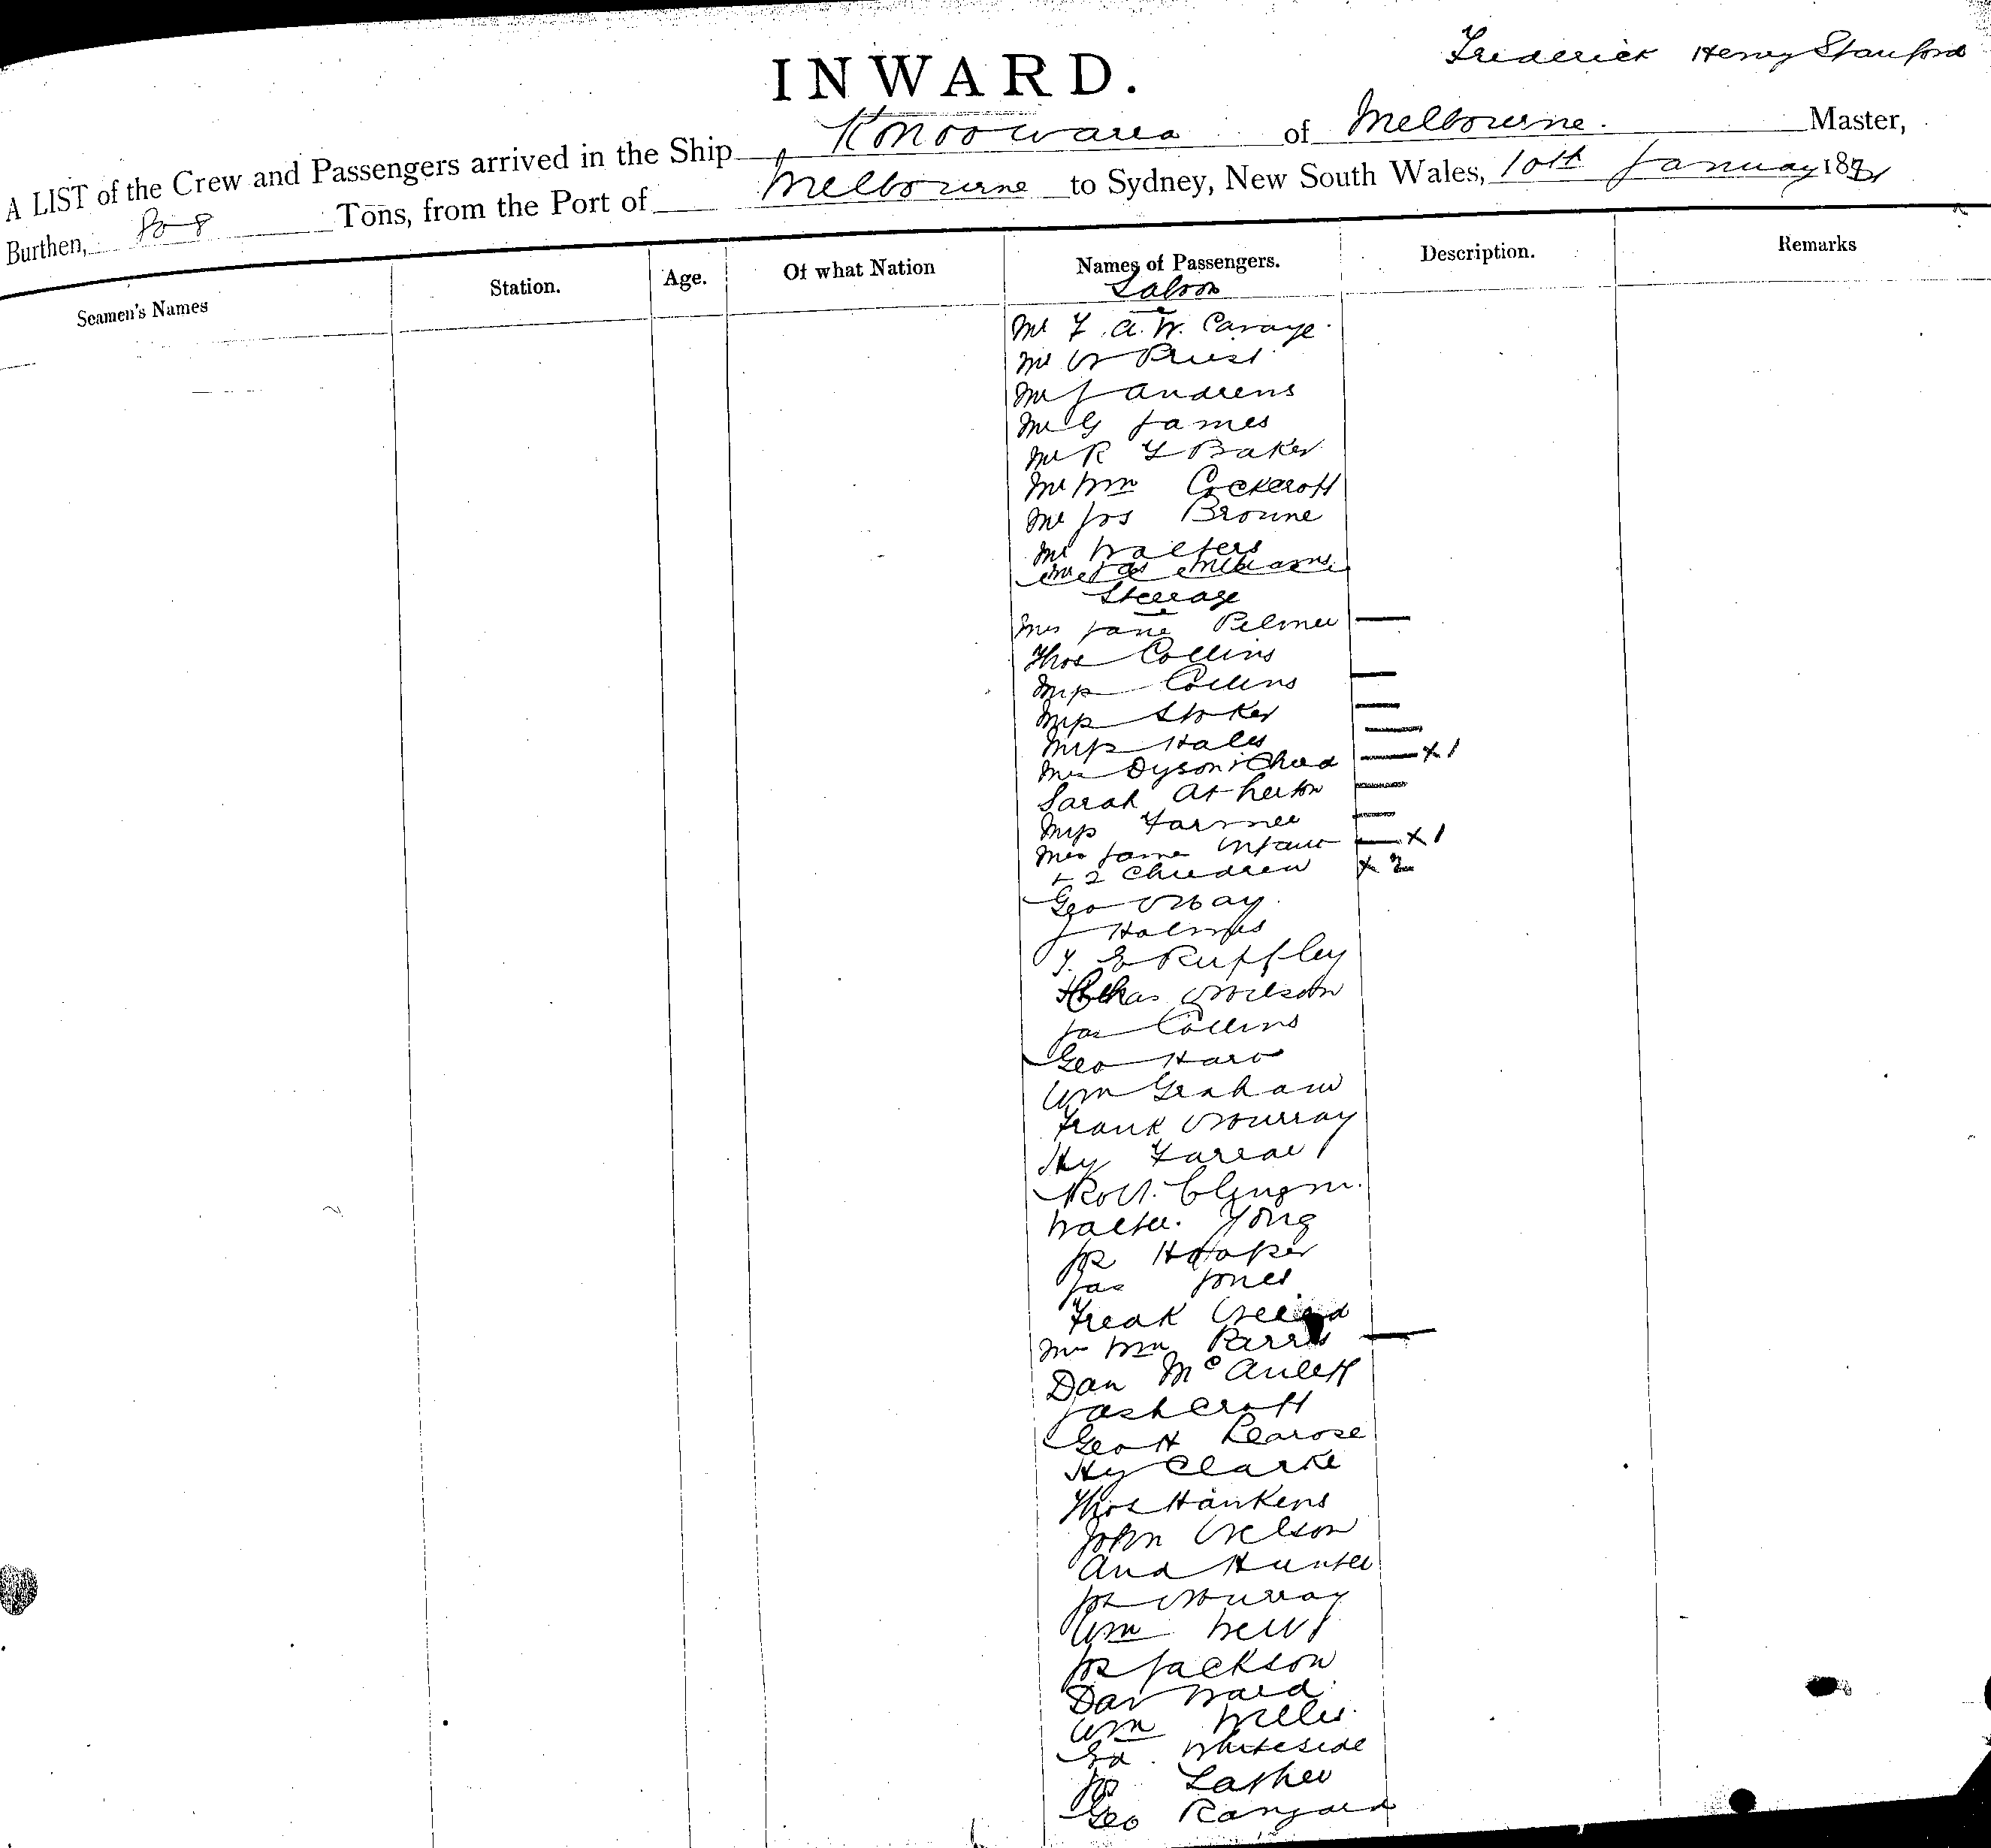 Frederick Henry Stanford
INWARD.
A LIST of the Crew and Passengers arrived in the Ship Konoowarra of Melbourne. Master,
Burthen, 808 Tons, from the Port of Melbourne to Sydney, New South Wales, 10th January 1891
Seamen's Names Station. Age. Of what Nation Names of Passengers. Description. Remarks
Saloon
Mr F. A. W. Cavaye
Mr W Priest
Mr J Andrews
Mr G James
Mr R F Baker
Mr Wm Cockcroft
Mr Jos Browne
Mr Walters
Steerage
Mrs Jane —
Thos Collins
Miss Collins —
Miss Stoker —
Miss Hales —
Mrs Dyson & Child — x 1
Sarah Atherton —
Miss Farmer —
Mrs Jame Infant — x 1
+ 2 Children x 2
Geo May
J Holmes
J. E Ruffley
Chas Wilson
Jas Collins
Geo Hard
Wm Graham
Frank Murray
Hy Farrar
Robt.
Walter Yong
Js Hooper
Jas Jones
Mrs Wm Parris —
Dan McAuleff
J Ashcroft
Geo H Pearose
Hy Clarke
Thos Hankens
John Nelson
And Hunter
Js Murray
Wm
Js Jackson
Dav Ward
Wm Willis
Ed. Whiteside
Js Lasher
Geo